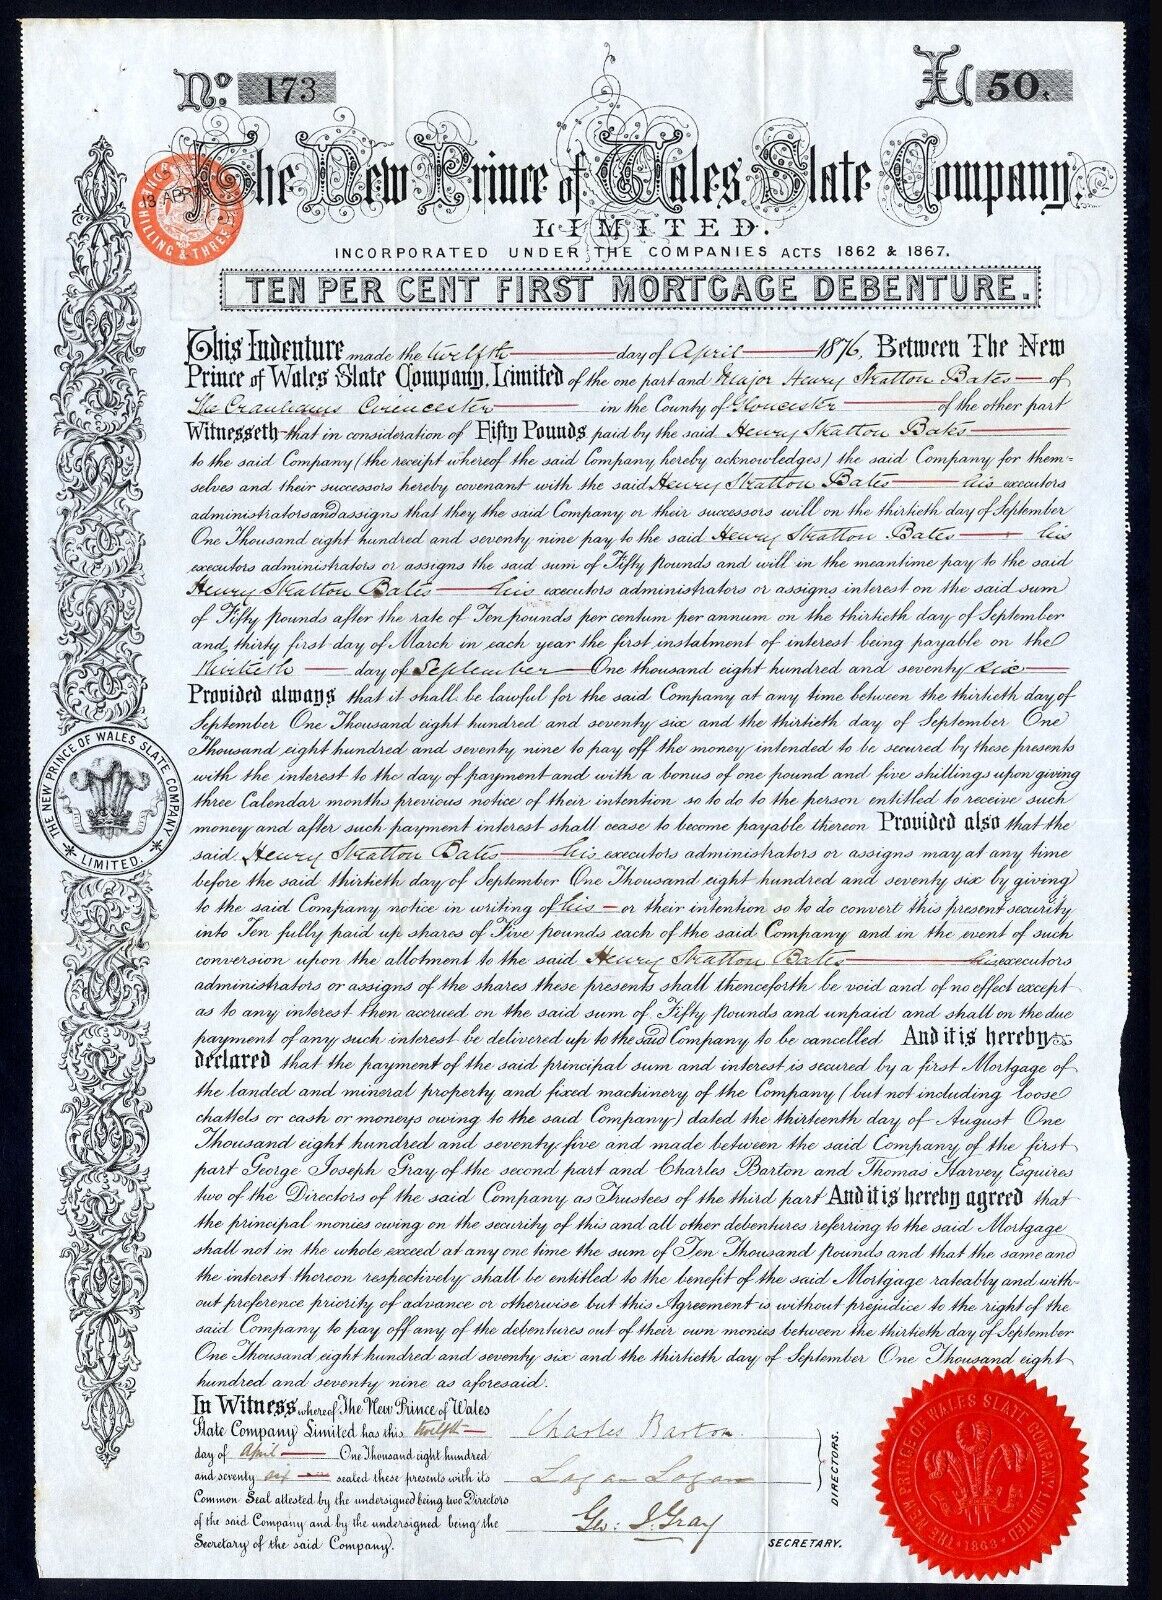 No. 173
£50.
The New Prince of Wales Slate Company.
LIMITED.
INCORPORATED UNDER THE COMPANIES ACTS 1862 & 1867.
TEN PER CENT FIRST MORTGAGE DEBENTURE.
This Indenture made the twelfth day of April 1876, Between The New
Prince of Wales Slate Company, Limited of the one part and Major Henry Stratton Bates of
The Cranhams Cirencester in the County of Gloucester of the other part
Witnesseth that in consideration of Fifty Pounds paid by the said Henry Stratton Bates
to the said Company (the receipt whereof the said Company hereby acknowledges) the said Company for them-
selves and their successors hereby covenant with the said Henry Stratton Bates his executors
administrators and assigns that they the said Company or their successors will on the thirtieth day of September
One Thousand eight hundred and seventy nine pay to the said Henry Stratton Bates his
executors administrators or assigns the said sum of Fifty pounds and will in the meantime pay to the said
Henry Stratton Bates his executors administrators or assigns interest on the said sum
of Fifty pounds after the rate of Ten pounds per centum per annum on the thirtieth day of September
and thirty first day of March in each year the first instalment of interest being payable on the
thirtieth day of September One thousand eight hundred and seventy six
Provided always that it shall be lawful for the said Company at any time between the thirtieth day of
September One Thousand eight hundred and seventy six and the thirtieth day of September One
Thousand eight hundred and seventy nine to pay off the money intended to be secured by these presents
with the interest to the day of payment and with a bonus of one pound and five shillings upon giving
three Calendar months previous notice of their intention so to do to the person entitled to receive such
money and after such payment interest shall cease to become payable thereon Provided also that the
said Henry Stratton Bates his executors administrators or assigns may at any time
before the said thirtieth day of September One Thousand eight hundred and seventy six by giving
to the said Company notice in writing of his or their intention so to do convert this present security
into Ten fully paid up shares of Five pounds each of the said Company and in the event of such
conversion upon the allotment to the said Henry Stratton Bates his executors
administrators or assigns of the shares these presents shall thenceforth be void and of no effect except
as to any interest then accrued on the said sum of Fifty pounds and unpaid and shall on the due
payment of any such interest be delivered up to the said Company to be cancelled And it is hereby
declared that the payment of the said principal sum and interest is secured by a first Mortgage of
the landed and mineral property and fixed machinery of the Company (but not including loose
chattels or cash or moneys owing to the said Company) dated the thirteenth day of August One
Thousand eight hundred and seventy-five and made between the said Company of the first
part George Joseph Gray of the second part and Charles Barton and Thomas Harvey Esquires
two of the Directors of the said Company as Trustees of the third part And it is hereby agreed that
the principal monies owing on the security of this and all other debentures referring to the said Mortgage
shall not in the whole exceed at any one time the sum of Ten Thousand pounds and that the same and
the interest thereon respectively shall be entitled to the benefit of the said Mortgage rateably and with-
out preference priority of advance or otherwise but this Agreement is without prejudice to the right of the
said Company to pay off any of the debentures out of their own monies between the thirtieth day of September
One Thousand eight hundred and seventy six and the thirtieth day of September One Thousand eight
hundred and seventy nine as aforesaid.
In Witness whereof The New Prince of Wales
Slate Company Limited has this twelfth
day of April One Thousand eight hundred
and seventy six sealed these presents with its
Common Seal attested by the undersigned being two Directors
of the said Company and by the undersigned being the
Secretary of the said Company.
Charles Barton.
Logan Logan
DIRECTORS.
Geo: J. Gray
SECRETARY.
THE NEW PRINCE OF WALES SLATE COMPANY
LIMITED.
SHILLING & THREE
THE NEW PRINCE OF WALES SLATE COMPANY LIMITED
1868